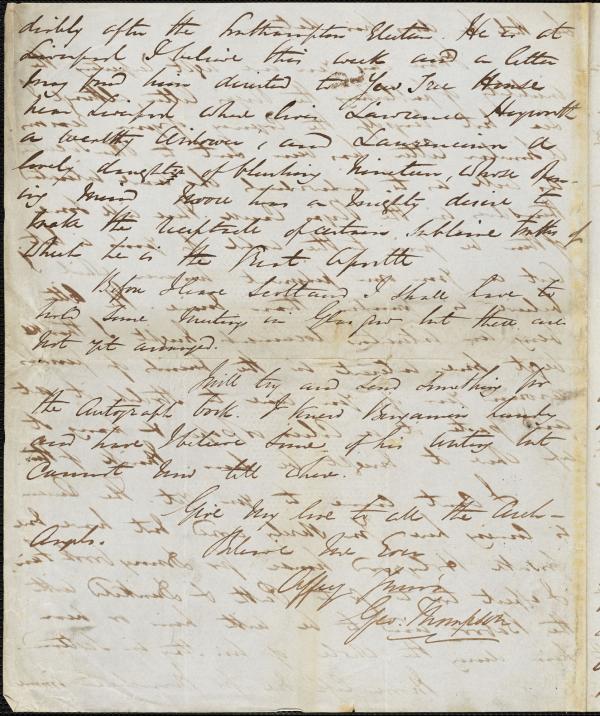 diately after the Southampton Election. He is at
Liverpool I believe this week and a letter
may find him directed to Yew Tree House
near Liverpool where lives Lawrence Heyworth
a wealthy Widower, and Lawrencina a
lovely daughter of blushing Nineteen, whose
ing mind Moore has a mighty desire to
make the receptacle of certain sublime truths of
which he is the Apostle
Before I leave Scotland I shall have to
hold some meetings in Glasgow but these are
not yet arranged.
I will try and send something for
the Autograph book. I knew Benjamin Lundy
and have I believe some of his writing but
cannot now tell where.
Give my love to all the Arch-
Angels.
Believe me Ever
Affecy Yours
Geo: Thompson